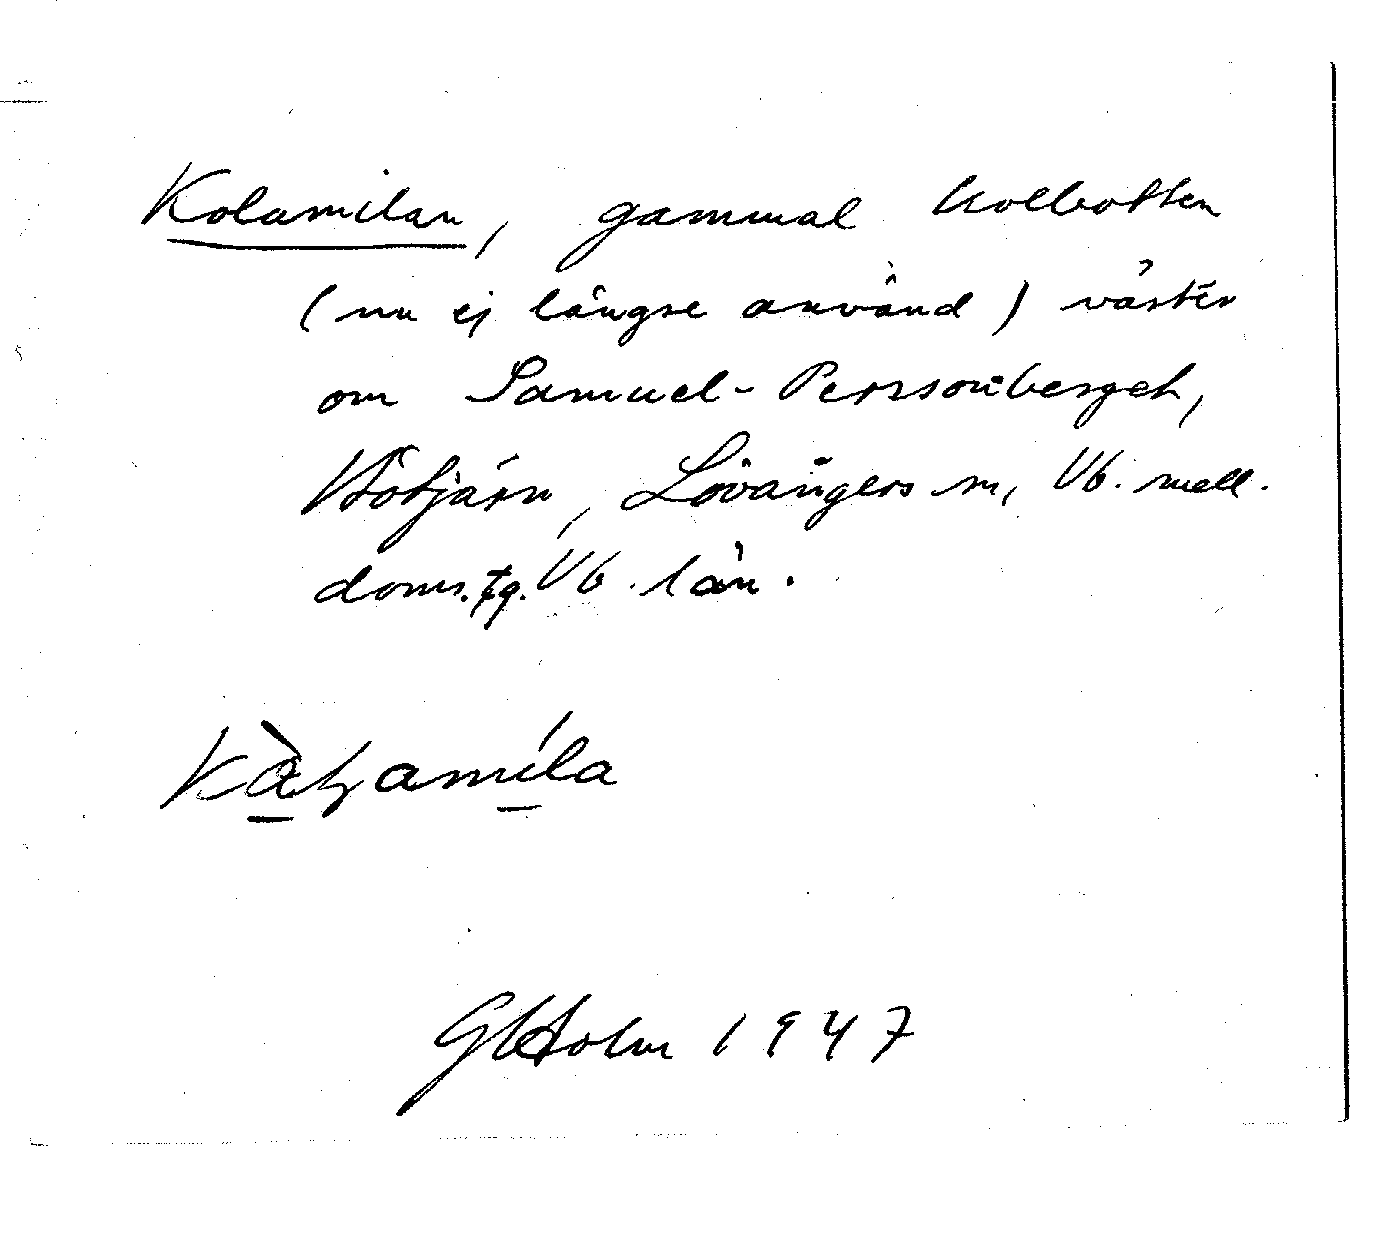 Kolamilan, gammal kolbotten
(nu ej längre använd) väster
om Samuel-Perssonberget,
Lövångers sn, Vb. mell.
doms. tg. Vb. län.
GHolm 1947